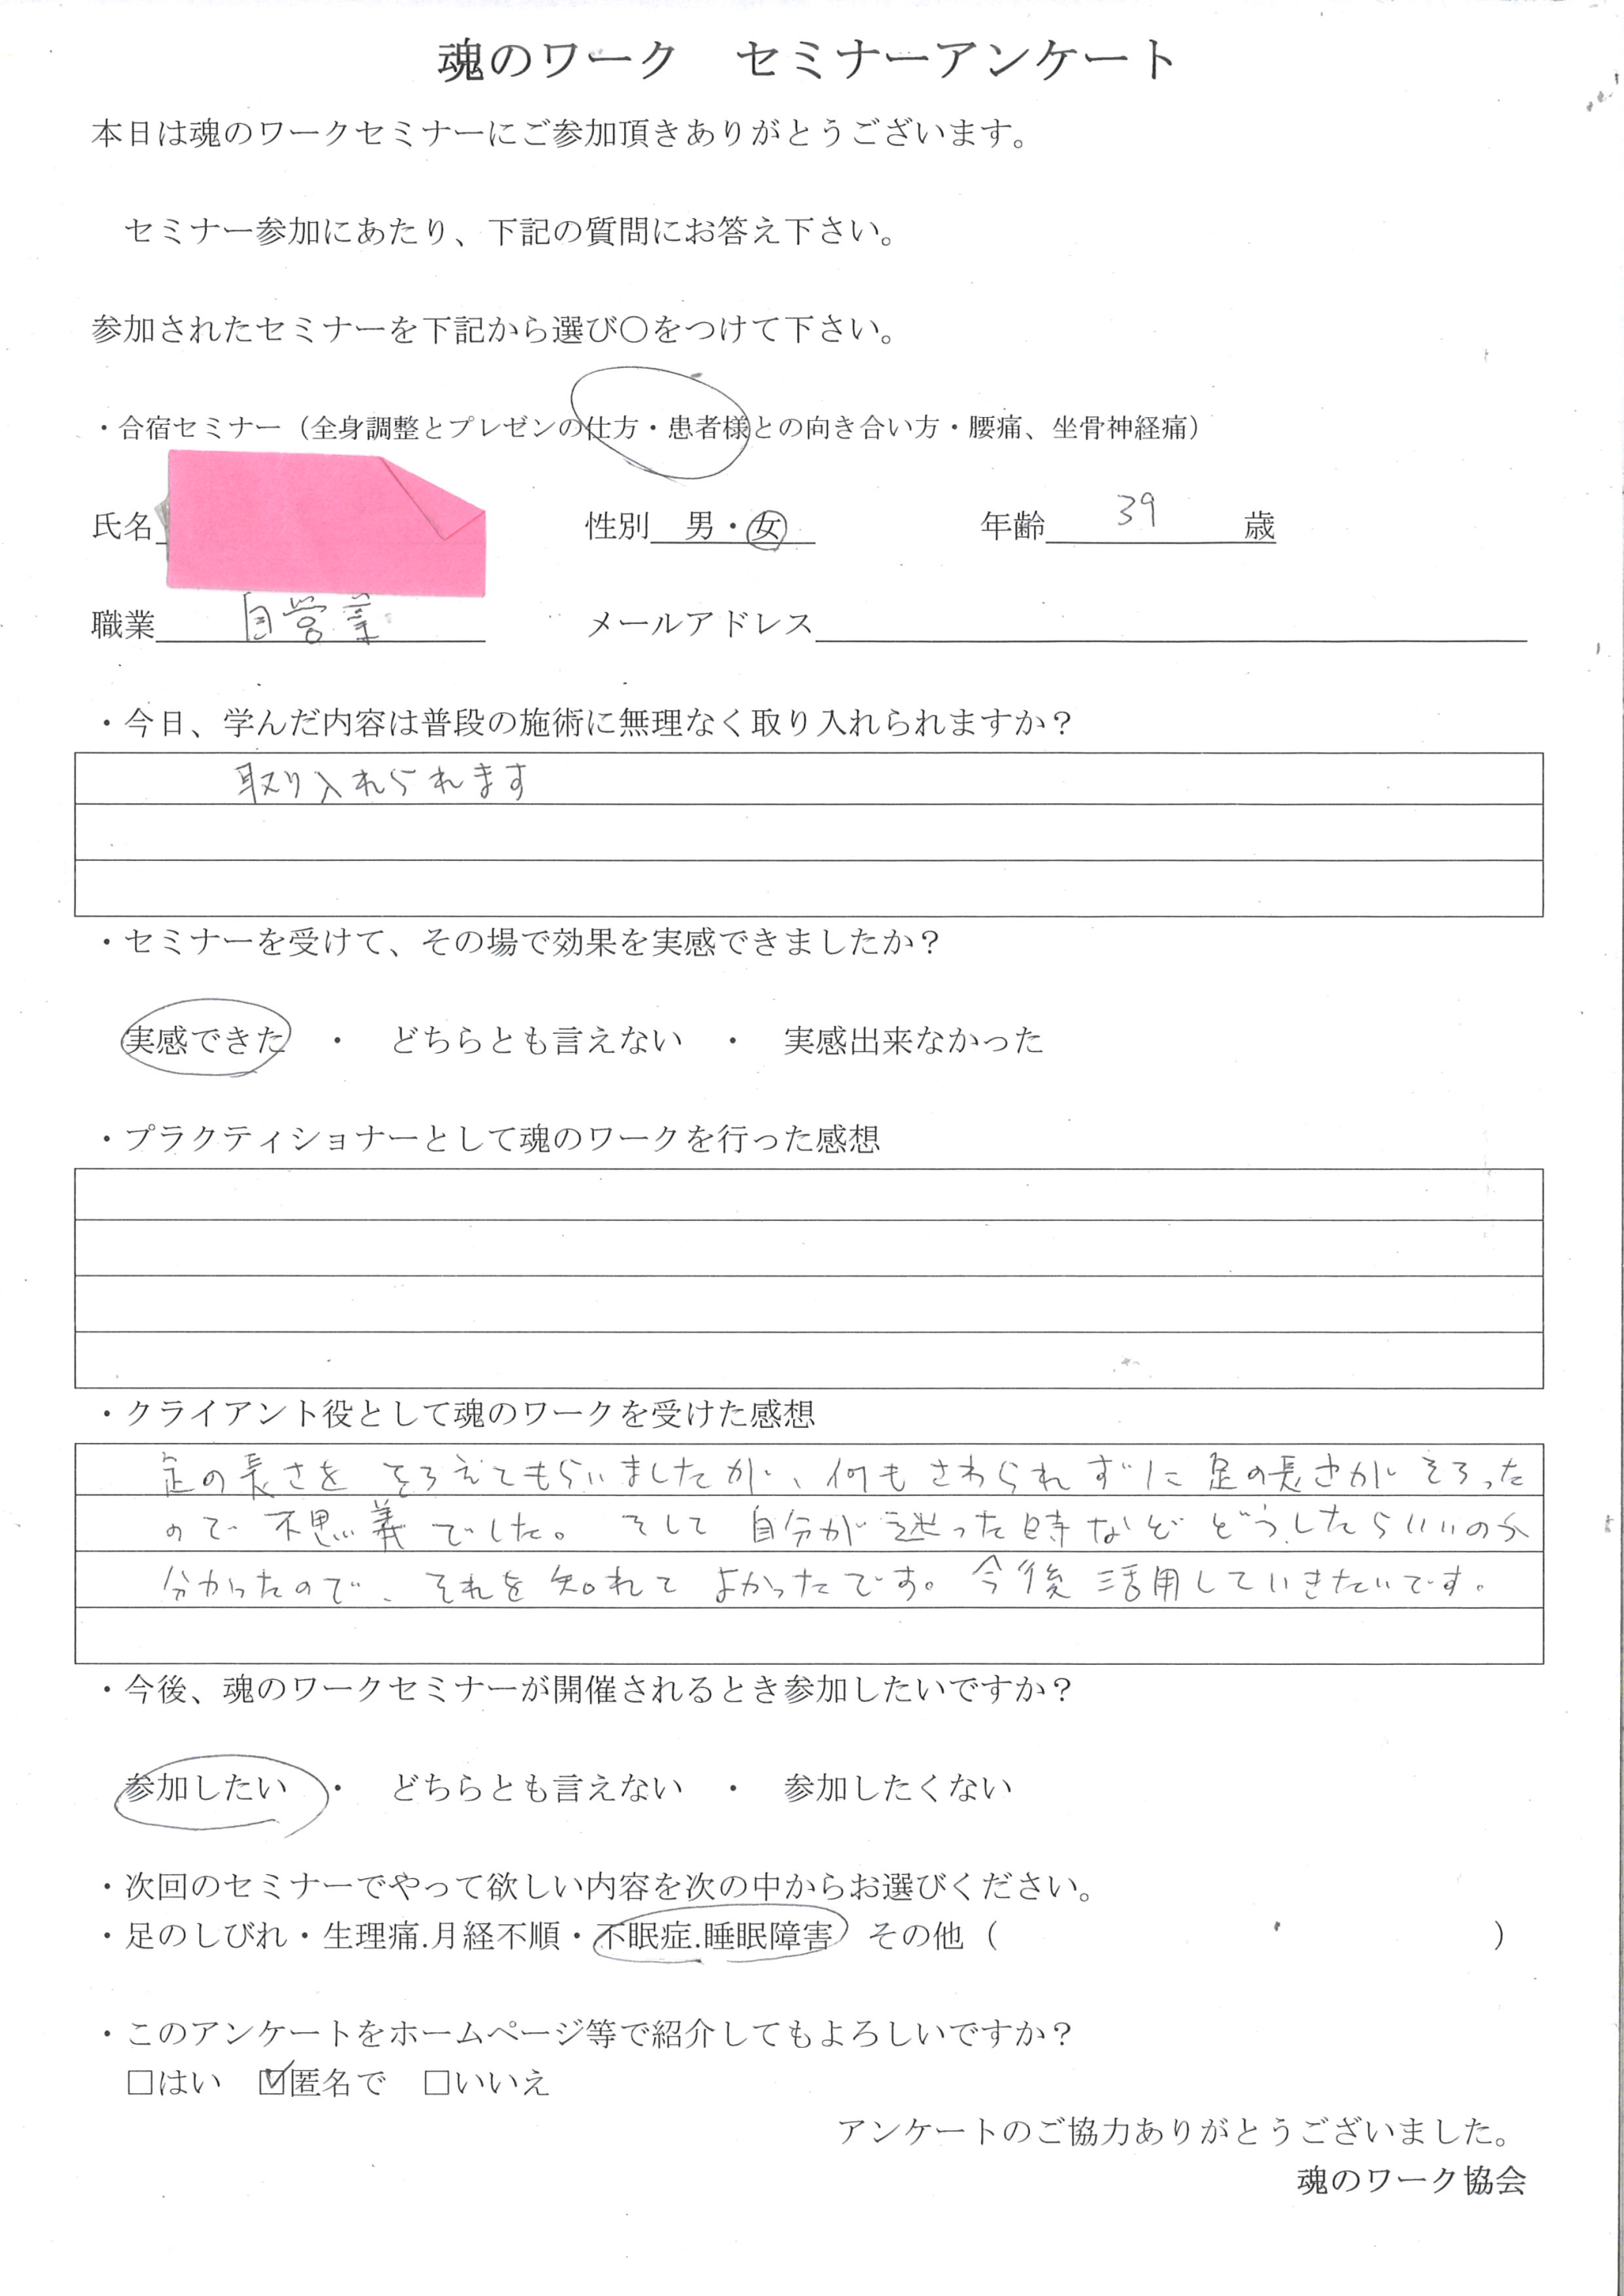 魂のワーク　セミナーアンケート
本日は魂のワークセミナーにご参加頂きありがとうございます。
セミナー参加にあたり、下記の質問にお答え下さい。
参加されたセミナーを下記から選び〇をつけて下さい。
・合宿セミナー（全身調整とプレゼンの仕方・患者様との向き合い方・腰痛、坐骨神経痛）
氏名　性別　男・女　年齢　39　歳
職業　自営業　メールアドレス
・今日、学んだ内容は普段の施術に無理なく取り入れられますか？
取り入れられます
・セミナーを受けて、その場で効果を実感できましたか？
実感できた　・　どちらとも言えない　・　実感出来なかった
・プラクティショナーとして魂のワークを行った感想
・クライアント役として魂のワークを受けた感想
足の長さを そろえてもらいましたが、何もさわられずに足の長さがそろった
ので 不思義でした。そして 自分が迷った時など どうしたらいいのか
分かったので、それを知れて よかったです。今後 活用していきたいです。
・今後、魂のワークセミナーが開催されるとき参加したいですか？
参加したい　・　どちらとも言えない　・　参加したくない
・次回のセミナーでやって欲しい内容を次の中からお選びください。
・足のしびれ・生理痛.月経不順・不眠症.睡眠障害　その他（　）
・このアンケートをホームページ等で紹介してもよろしいですか？
□はい　☑匿名で　□いいえ
アンケートのご協力ありがとうございました。
魂のワーク協会